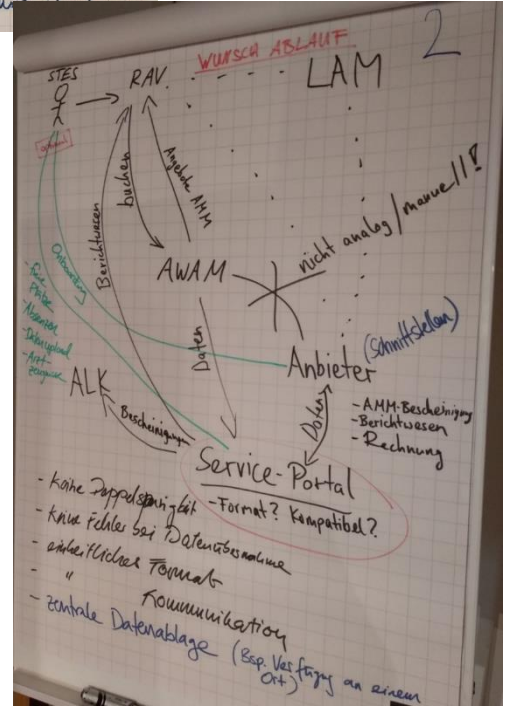 WUNSCH ABLAUF
2
STES
RAV
LAM
optional
buchen
Angebote AMM
Berichtwesen
nicht analog/manuell!
AWAM
Onboarding
- Absenzen
- Arzt-
zeugnisse
Daten
(Schnittstellen)
Anbieter
ALK
Bescheinigung
Daten
- AMM-Bescheinigung
- Berichtwesen
- Rechnung
Service-Portal
- Format? Kompatibel?
- Keine Doppelspurigkeit
- keine Fehler bei Datenübernahme
- einheitliches Format
- " Kommunikation
- zentrale Datenablage (Bsp. Verfügung an einem
Ort)